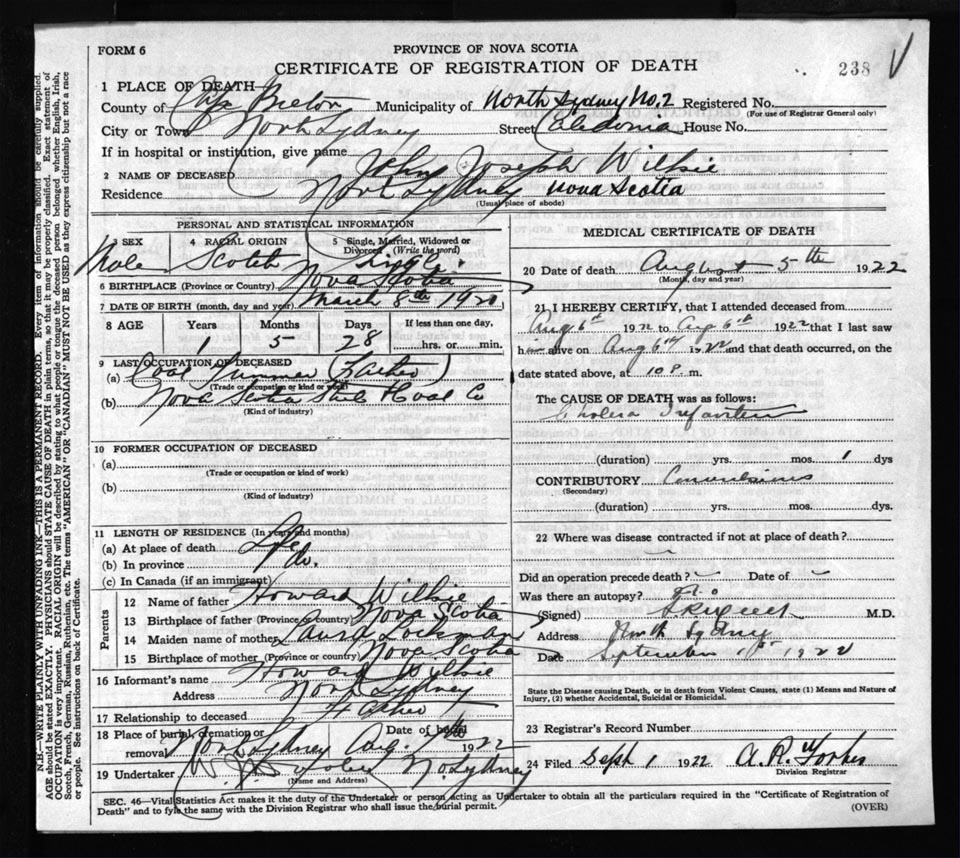 FORM 6
PROVINCE OF NOVA SCOTIA
CERTIFICATE OF REGISTRATION OF DEATH
238
1 PLACE OF DEATH
County of Cape Breton Municipality of North Sydney No. 2 Registered No.
(For use of Registrar General only)
City or Town North Sydney Street Caledonia House No.
If in hospital or institution, give name
2 NAME OF DECEASED John Joseph Wilkie
Residence North Sydney Nova Scotia
(Usual place of abode)
PERSONAL AND STATISTICAL INFORMATION
3 SEX 4 RACIAL ORIGIN 5 Single, Married, Widowed or Divorced (Write the word)
Male Scotch Single
6 BIRTHPLACE (Province or Country) Nova Scotia
7 DATE OF BIRTH (month, day and year) March 8th
8 AGE Years Months Days If less than one day,
1 5 28 hrs. or min.
9 LAST OCCUPATION OF DECEASED
(a) Coal (Father)
(Trade or occupation or kind of work)
(b) Nova Scotia Steel & Coal Co
(Kind of industry)
10 FORMER OCCUPATION OF DECEASED
(a)
(Trade or occupation or kind of work)
(b)
(Kind of industry)
11 LENGTH OF RESIDENCE (In years and months)
(a) At place of death Life
(b) In province do.
(c) In Canada (if an immigrant)
Parents
12 Name of father Howard Wilkie
13 Birthplace of father (Province or Country) Nova Scotia
14 Maiden name of mother Laura
15 Birthplace of mother (Province or country) Nova Scotia
16 Informant's name Howard Wilkie
Address North Sydney
17 Relationship to deceased Father
18 Place of burial, cremation or removal North Sydney Date of burial Aug. 7th 1922
19 Undertaker No Sydney
(Name and Address)
MEDICAL CERTIFICATE OF DEATH
20 Date of death August 5th 1922
(Month, day and year)
21 I HEREBY CERTIFY, that I attended deceased from
Aug 6th 1922 to Aug 6th 1922 that I last saw
him alive on Aug 6th 1922 and that death occurred, on the
date stated above, at 10 P. m.
The CAUSE OF DEATH was as follows:
Cholera Infantum
(duration) yrs. mos. 1 dys
CONTRIBUTORY Convulsions
(Secondary)
(duration) yrs. mos. dys.
22 Where was disease contracted if not at place of death?
Did an operation precede death? Date of
Was there an autopsy? no
(Signed) M.D.
Address North Sydney
Date September 1st 1922
State the Disease causing Death, or in death from Violent Causes, state (1) Means and Nature of
Injury, (2) whether Accidental, Suicidal or Homicidal.
23 Registrar's Record Number
24 Filed Sept 1 1922 A. R. Forbes
Division Registrar
SEC. 46—Vital Statistics Act makes it the duty of the Undertaker or person acting as Undertaker to obtain all the particulars required in the "Certificate of Registration of
Death" and to fyle the same with the Division Registrar who shall issue the burial permit.
(OVER)
N.B.—WRITE PLAINLY WITH UNFADING INK—THIS IS A PERMANENT RECORD. Every item of information should be carefully supplied.
AGE should be stated EXACTLY. PHYSICIANS should STATE CAUSE OF DEATH in plain terms, so that it may be properly classified. Exact statement of
OCCUPATION is very important. RACIAL ORIGIN will be described by stating to what people or tongue the deceased person belonged whether English, Irish,
Scotch, French, German, Russian, Ruthenian, etc. The terms "AMERICAN" OR "CANADIAN" MUST NOT BE USED as they express citizenship but not a race
or people. See instructions on back of Certificate.